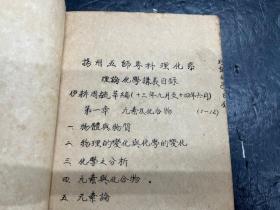 揚州五師專科理化系
理論化學講義目錄
伊耕周毓莘編(十二年九月至十四年六月)
第一章 元素及化合物 (1-12)
一 物體與物質
二 物理的變化與化學的變化
三 化學之分析
四 元素與化合物.
五 元素論